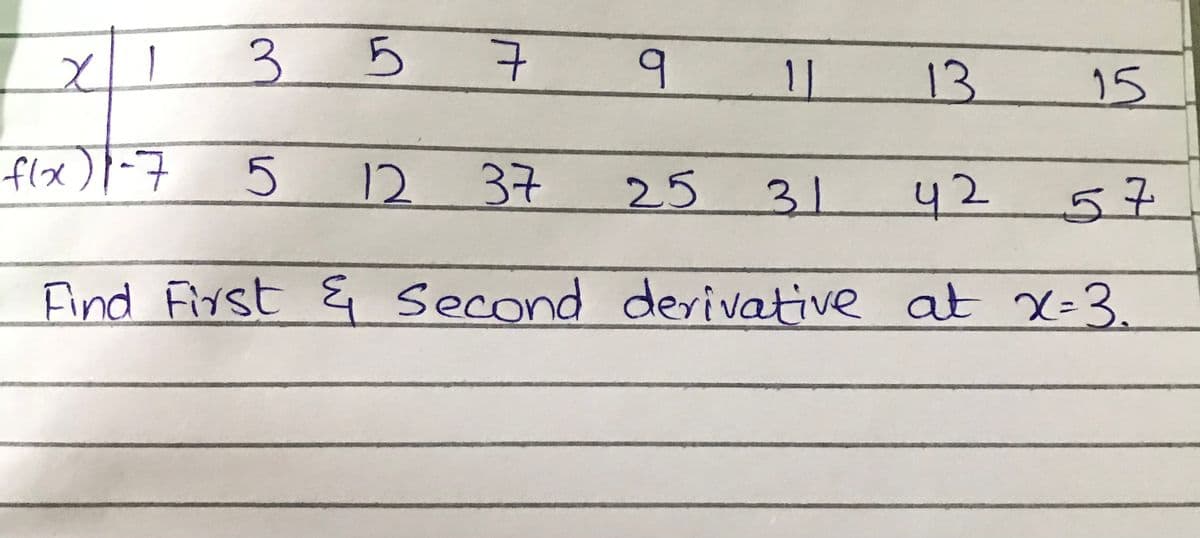 x | 1 3 5 7 9 11 13 15
f(x) | -7 5 12 37 25 31 42 57
Find First & Second derivative at x=3.